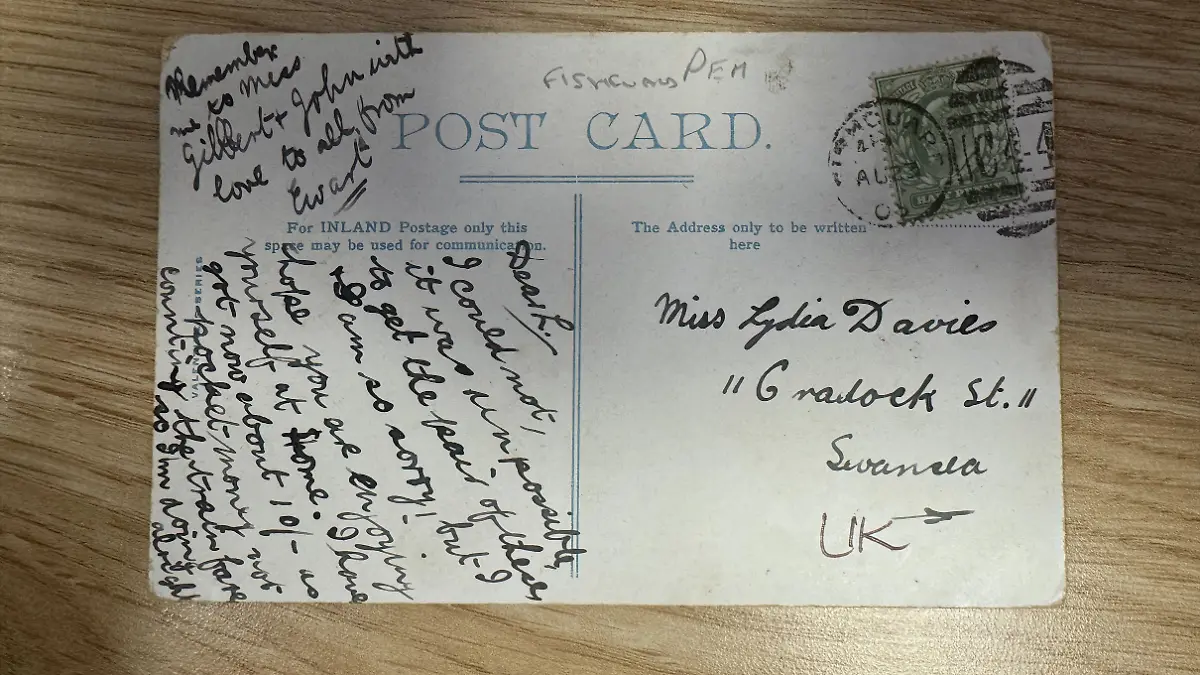 Remember
me to Miss
Gilbert + John with
love to all, from
Ewart
PEM
POST CARD.
For INLAND Postage only this
space may be used for communication.
The Address only to be written
here
Dear L.,
I could not,
it was impossible,
to get the pair of these
& I am so sorry! but I
hope you are enjoying
yourself at Home. I have
got now about 10/- as
pocket-money not
counting the train fare
so I'm doing alright
VALENTINES SERIES
Miss Lydia Davies
"Cradock St."
Swansea
UK
AU 3